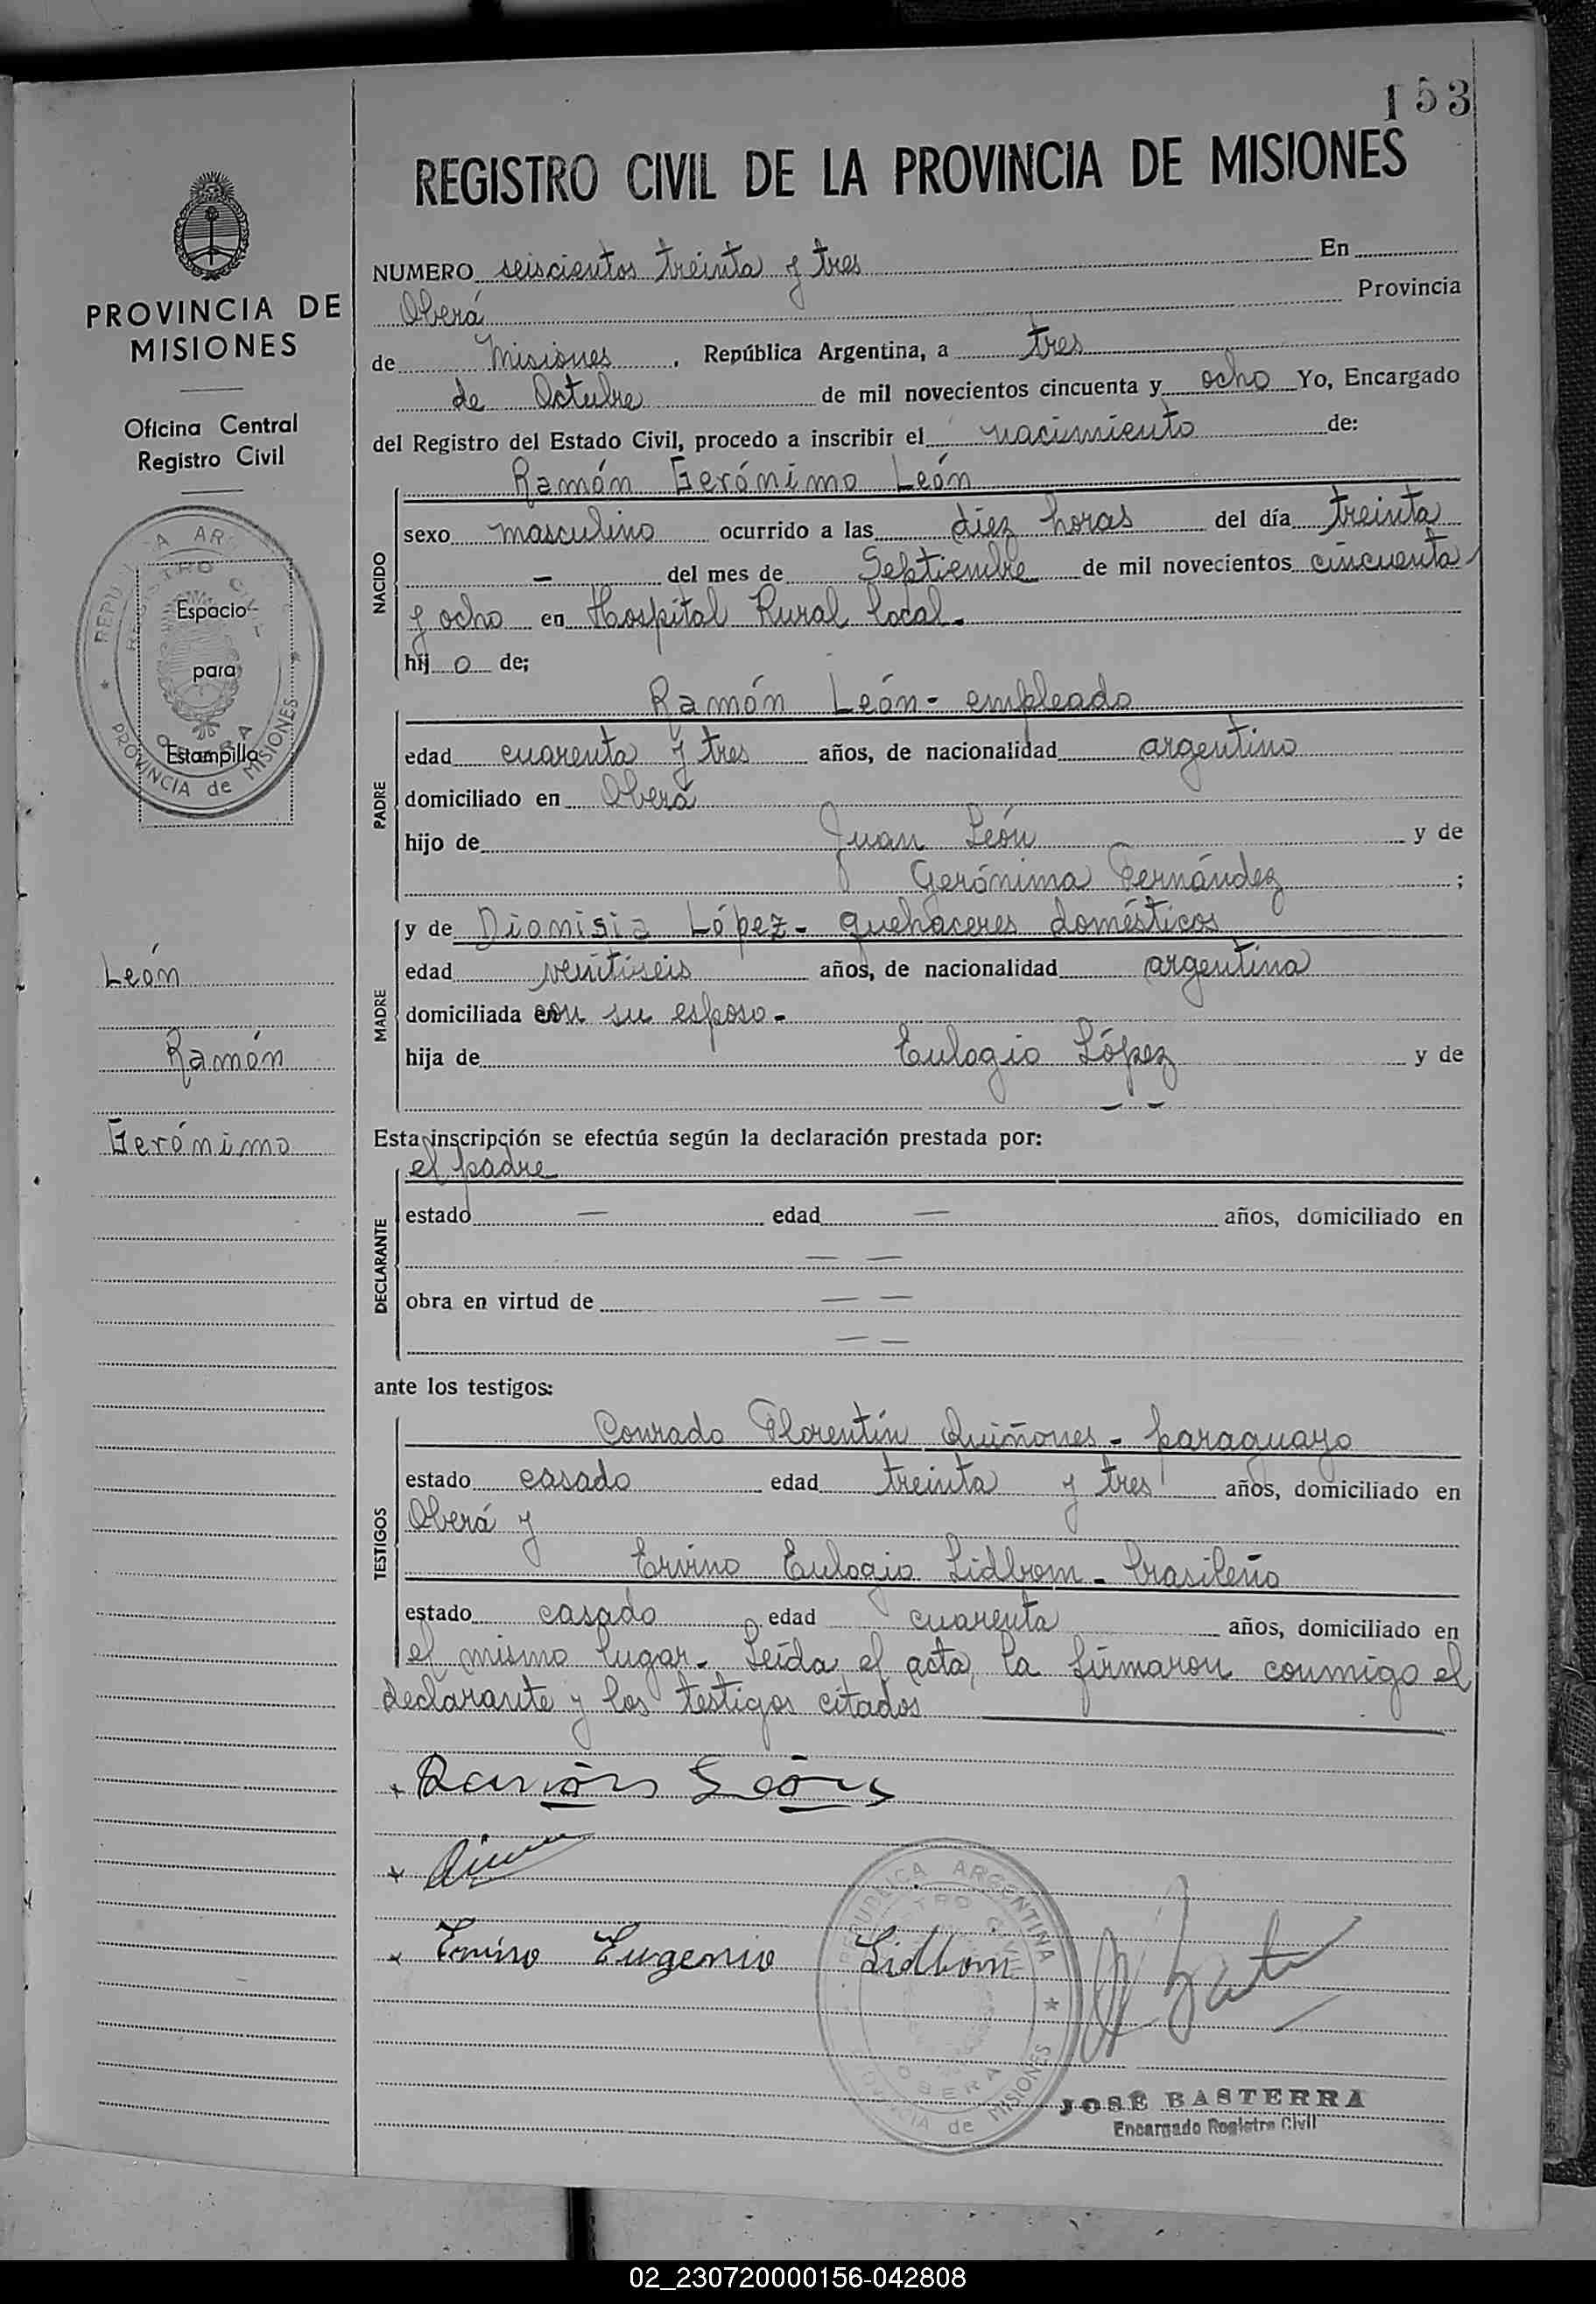 153
REGISTRO CIVIL DE LA PROVINCIA DE MISIONES
PROVINCIA DE
MISIONES
Oficina Central
Registro Civil
REPUBLICA AR
REGISTRO CIVIL
Espacio
para
Estampilla
PROVINCIA de MISIONES
León
Ramón
Gerónimo
NUMERO seiscientos treinta y tres En
Oberá Provincia
de Misiones, República Argentina, a tres
de Octubre de mil novecientos cincuenta y ocho Yo, Encargado
del Registro del Estado Civil, procedo a inscribir el nacimiento de:
NACIDO
Ramón Gerónimo León
sexo masculino ocurrido a las diez horas del día treinta
- del mes de Septiembre de mil novecientos cincuenta
y ocho en Hospital Rural local.
hij o de;
PADRE
Ramón León - empleado
edad cuarenta y tres años, de nacionalidad argentino
domiciliado en Oberá
hijo de Juan León y de
Gerónima Fernández ;
MADRE
y de Dionisia López - quehaceres domésticos
edad veintiseis años, de nacionalidad argentina
domiciliada con su esposo -
hija de Eulogio López y de
- -
Esta inscripción se efectúa según la declaración prestada por:
DECLARANTE
el padre
estado — edad — años, domiciliado en
— —
obra en virtud de — —
— —
ante los testigos:
TESTIGOS
Conrado Florentín Quiñones - paraguayo
estado casado edad treinta y tres años, domiciliado en
Oberá y
Ervino Eulogio Lidbrom - brasileño
estado casado edad cuarenta años, domiciliado en
el mismo lugar. Leída el acta, la firmaron conmigo el
declarante y los testigos citados
x Ramón León
x
x Ervino Eugenio Lidbom
REPUBLICA ARGENTINA
REGISTRO CIVIL
OBERA
PROVINCIA de MISIONES
JOSÉ BASTERRA
Encargado Registro Civil
02_230720000156-042808